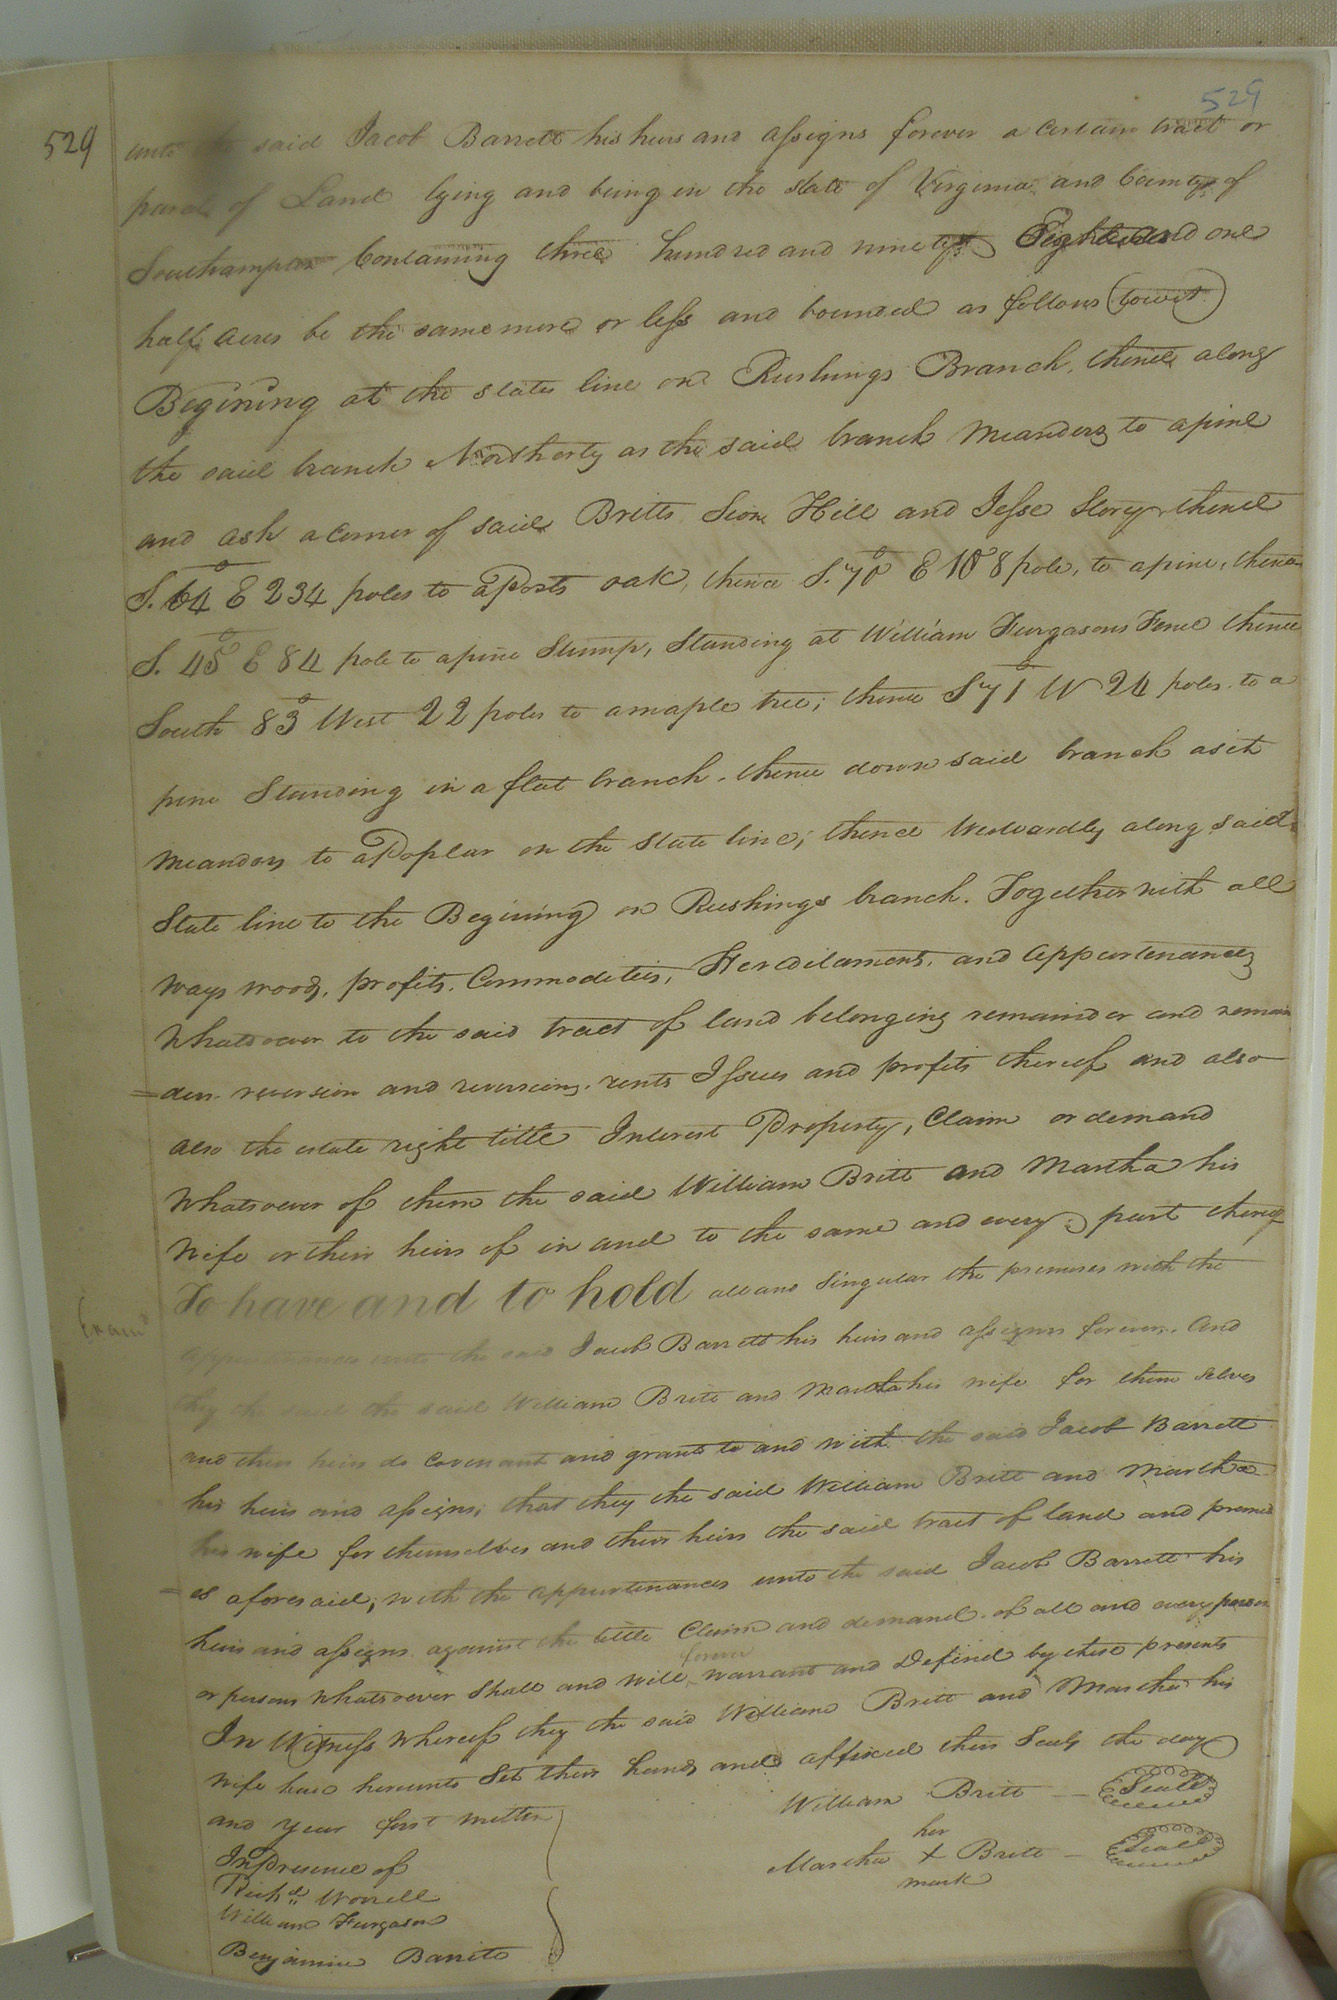 529
529
unto the said Jacob Barrett his heirs and assigns forever a certain tract or
parcel of Land lying and being in the state of Virginia and County of
Southampton Containing three hundred and ninety Eight and one
half acres be the same more or less and bounded as follows (towit)
Begining at the states line on Rushings Branch, thence along
the said branch Northerly as the said branch Meanders to a pine
and ash a corner of said Britts Sion Hill and Jesse Story thence
S. 64° E 234 poles to a Posts oak, thence S. 70° E 108 pole, to a pine, thence
S. 45° E 84 pole to a pine Stump, Standing at William Furgasons Fence thence
South 83° West 22 poles to a maple tree; thence S 71° W 24 poles to a
pine Standing in a flat branch. thence down said branch as it
meanders to a Poplar on the State line; thence Westwardly along said
State line to the Begining on Rushings branch. Together with all
ways woods, profits, Commodities, Hereditaments, and appurtenances
Whatsoever to the said tract of land belonging remainder and remain
=ders reversion and reversions, rents Issues and profits thereof and also
also the estate right title Interest Property, Claim or demand
Whatsoever of them the said William Britt and Martha his
Wife or their heirs of in and to the same and every part thereof
To have and to hold all and Singular the premises with the
Exam.d
appurtenances unto the said Jacob Barrett his heirs and assigns forever. And
they the said the said William Britt and Martha his wife for them selves
and their heirs do Covenant and grant to and with the said Jacob Barrett
his heirs and assigns, that they the said William Britt and Martha
his wife for themselves and their heirs the said tract of land and premis
=es aforesaid, with the appurtenances unto the said Jacob Barrett his
heirs and assigns against the title Claim and demand of all and every person
forever
or persons whatsoever Shall and will warrant and Defend by these presents
In Witness Whereof they the said William Britt and Martha his
Wife have hereunto Set their hands and affixed their Seals the day
and year first written
William Britt — Seal
In Presence of
her
Martha X Britt — Seal
mark
Rich.d Worrell
William Furgason
Benjamin Barrett